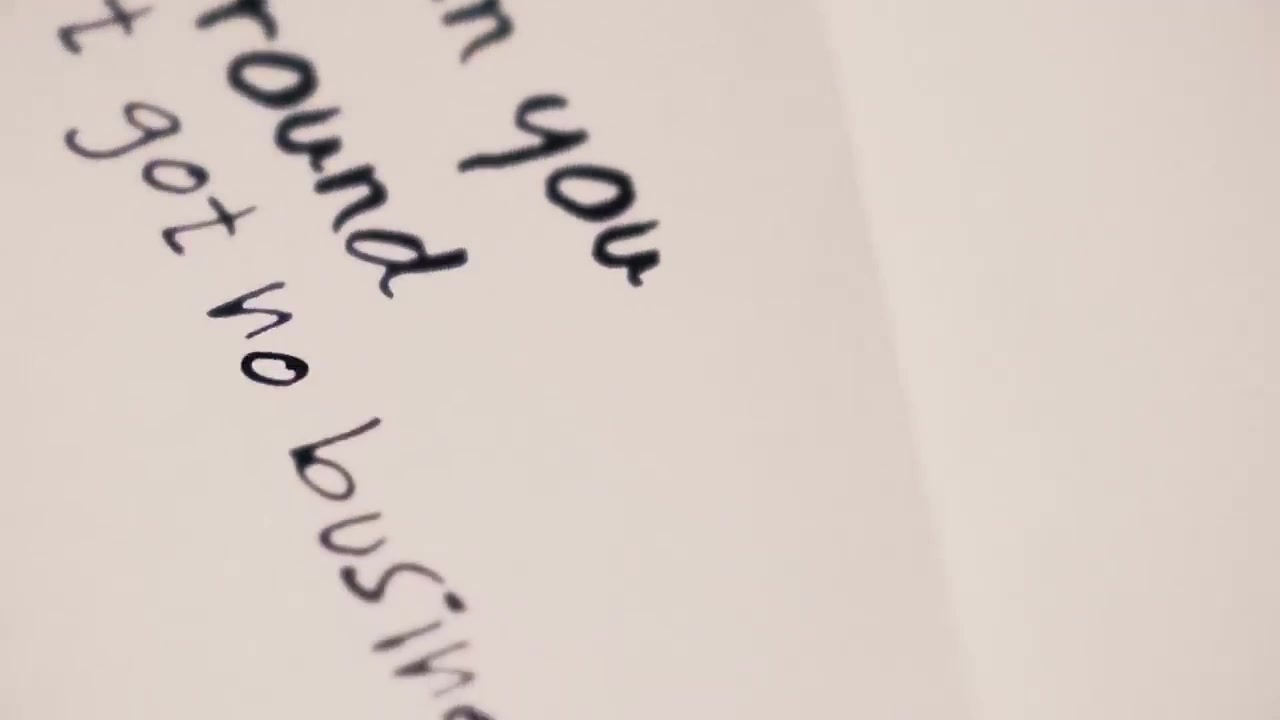 n you
round
t got no busine